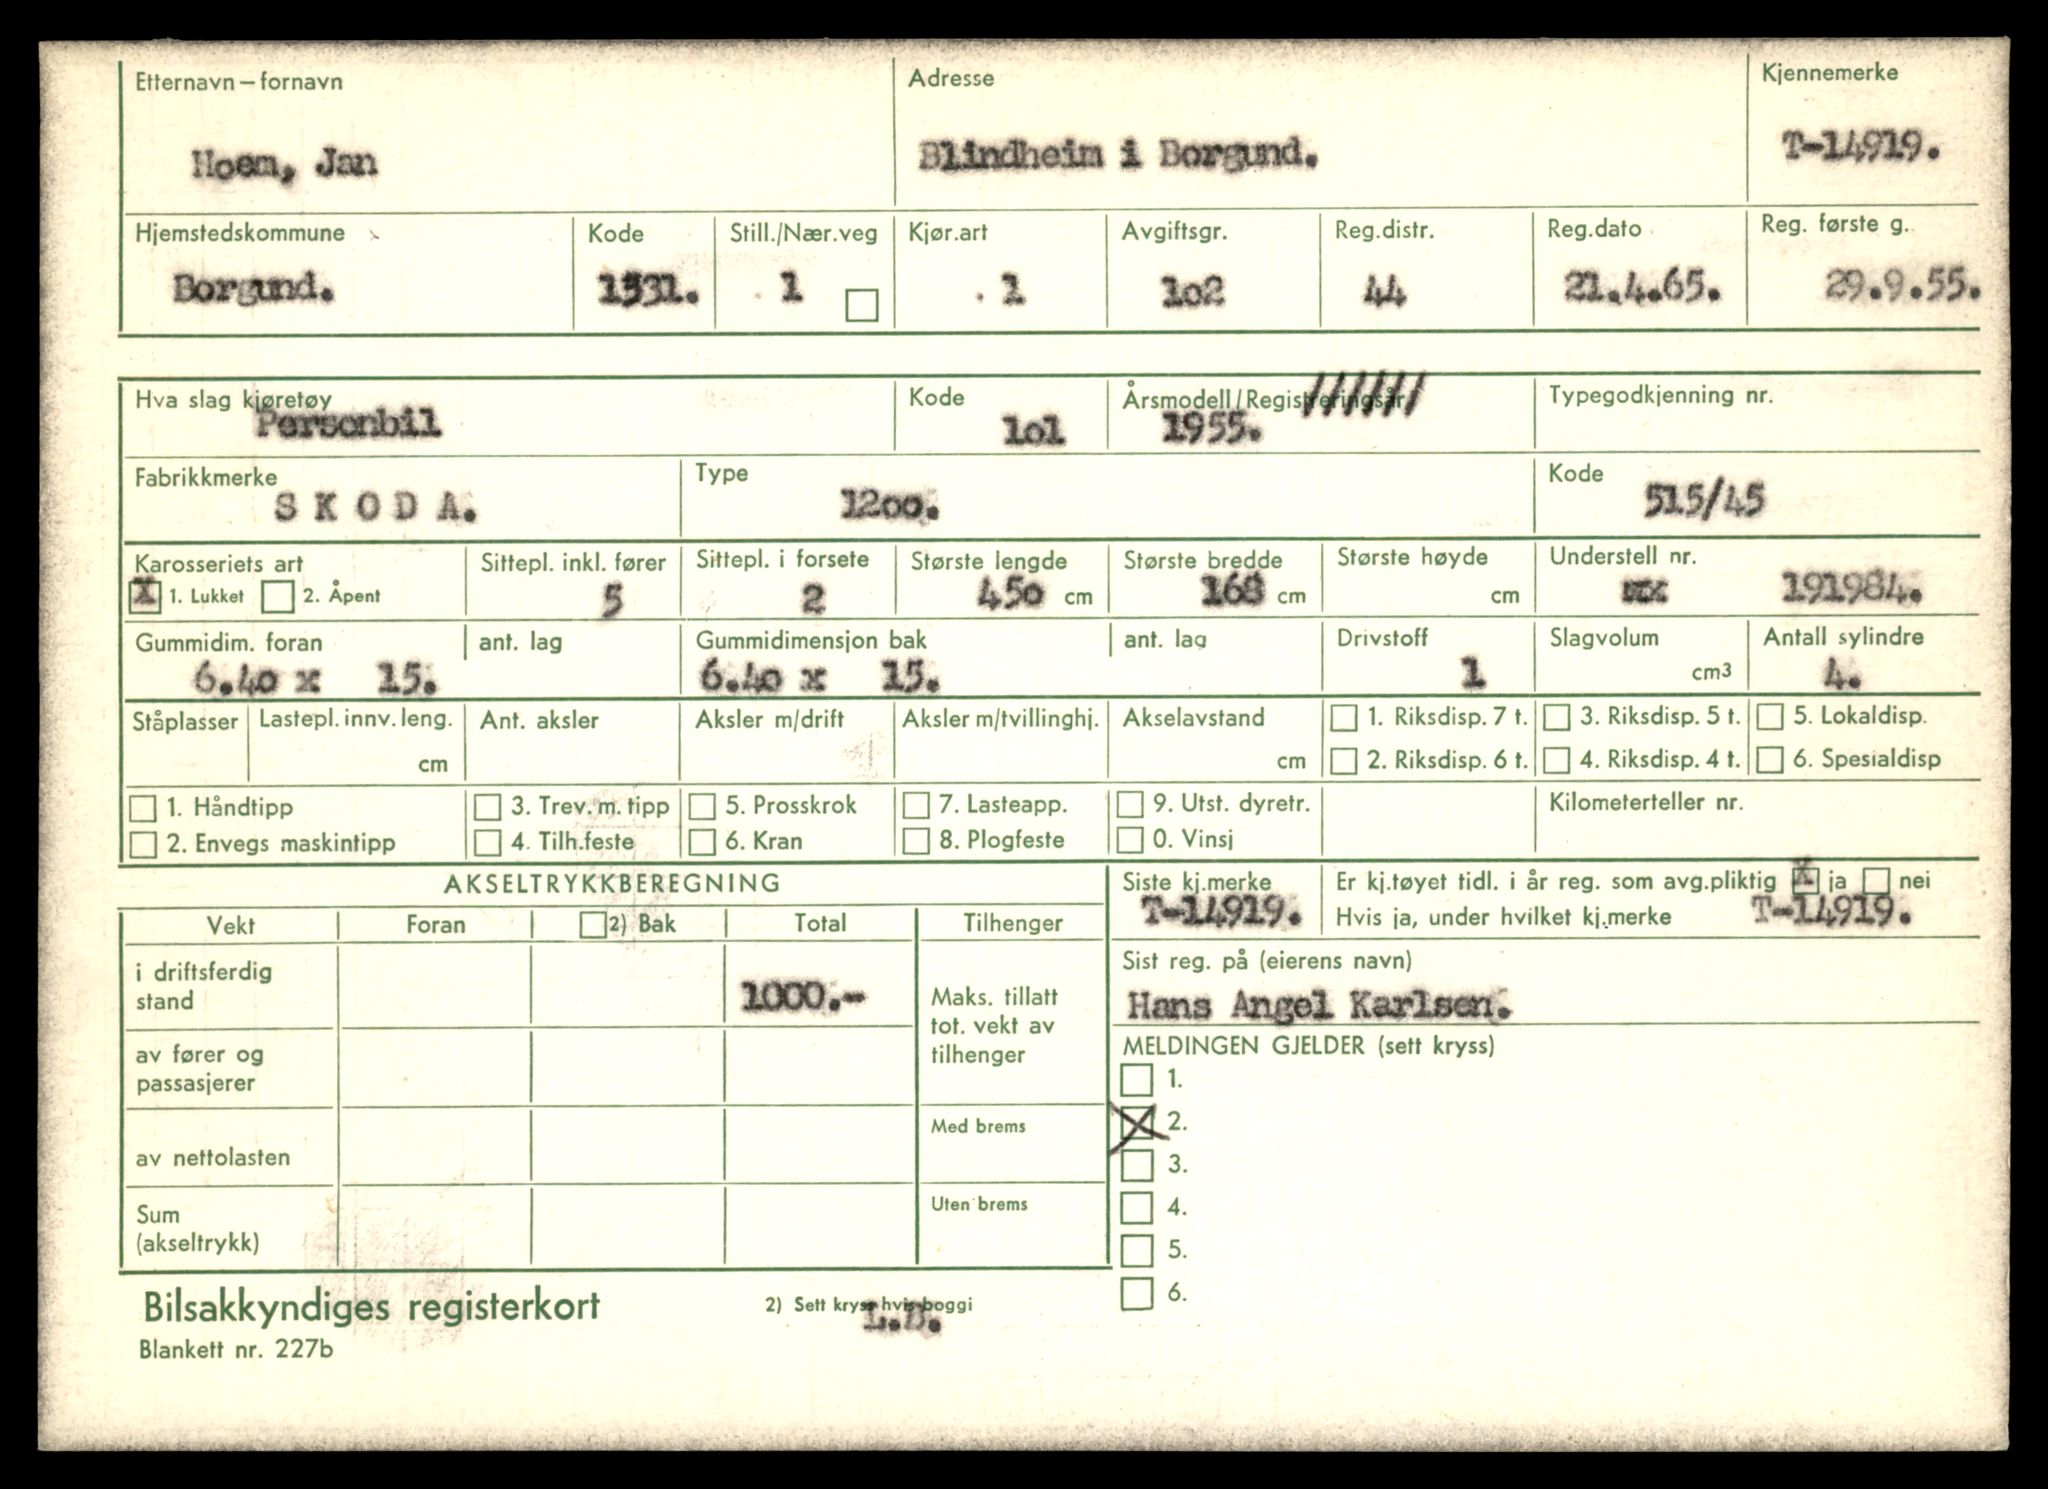 Etternavn – fornavn Adresse Kjennemerke
Hoem, Jan Blindheim i Borgund. T-14919.
Hjemstedskommune Kode Still./Nær.veg Kjør.art Avgiftsgr. Reg.distr. Reg.dato Reg. første g.
Borgund. 1531. 1 1 1o2 44 21.4.65. 29.9.55.
Hva slag kjøretøy Kode Årsmodell/Registreringsår Typegodkjenning nr.
Personbil 1o1 1955.
Fabrikkmerke Type Kode
S K O D A. 12oo. 515/45
Karosseriets art Sittepl. inkl. fører Sittepl. i forsete Største lengde Største bredde Største høyde Understell nr.
X 1. Lukket 2. Åpent 5 2 450 cm 168 cm cm 191984.
Gummidim. foran ant. lag Gummidimensjon bak ant. lag Drivstoff Slagvolum Antall sylindre
6.40 x 15. 6.40 x 15. 1 cm3 4.
Ståplasser Lastepl. innv. leng. Ant. aksler Aksler m/drift Aksler m/tvillinghj. Akselavstand 1. Riksdisp. 7 t. 3. Riksdisp. 5 t. 5. Lokaldisp.
cm cm 2. Riksdisp. 6 t. 4. Riksdisp. 4 t. 6. Spesialdisp
1. Håndtipp 3. Trev. m. tipp 5. Prosskrok 7. Lasteapp. 9. Utst. dyretr. Kilometerteller nr.
2. Envegs maskintipp 4. Tilh.feste 6. Kran 8. Plogfeste 0. Vinsj
AKSELTRYKKBEREGNING Siste kj.merke Er kj.tøyet tidl. i år reg. som avg.pliktig X ja nei
T-14919. Hvis ja, under hvilket kj.merke T-14919.
Vekt Foran 2) Bak Total Tilhenger
Sist reg. på (eierens navn)
i driftsferdig
stand 1000.- Maks. tillatt
Hans Angel Karlsen.
tot. vekt av
tilhenger
av fører og
passasjerer
MELDINGEN GJELDER (sett kryss)
1.
Med brems X 2.
av nettolasten 3.
Uten brems 4.
Sum
(akseltrykk) 5.
6.
Bilsakkyndiges registerkort 2) Sett kryss hvis boggi
L.B.
Blankett nr. 227b